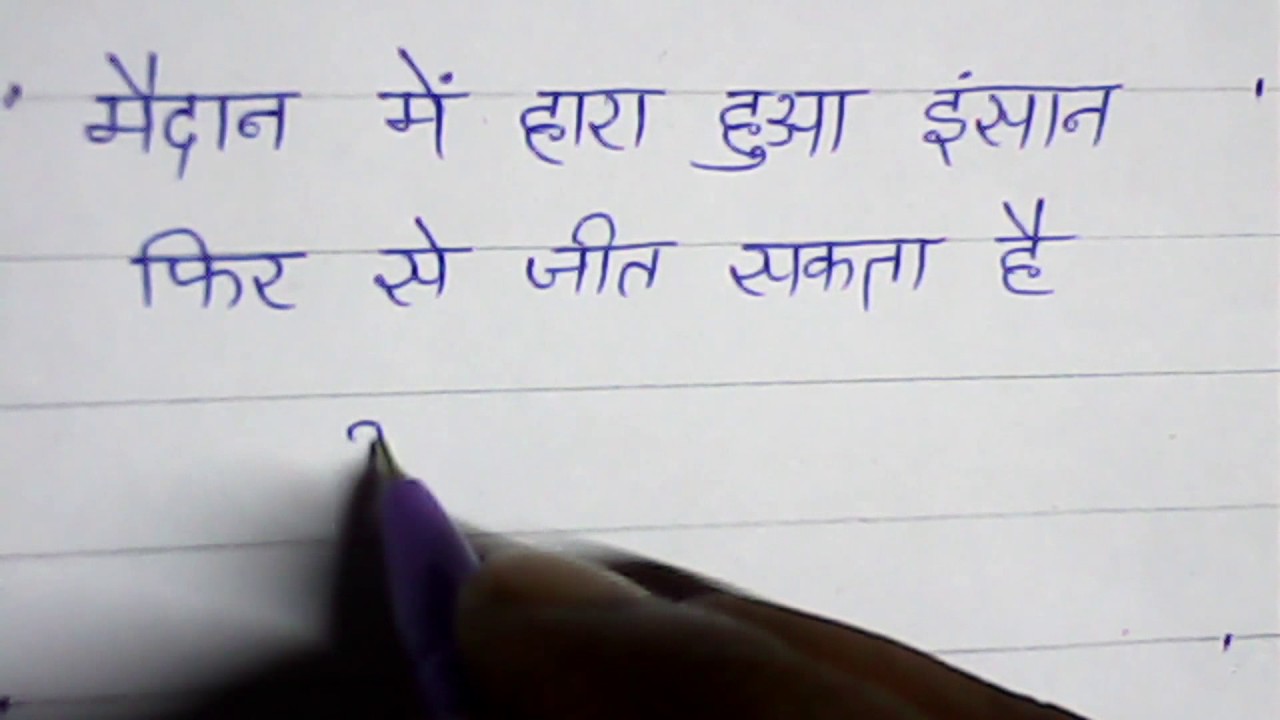 मैदान में हारा हुआ इंसान
फिर से जीत सकता है